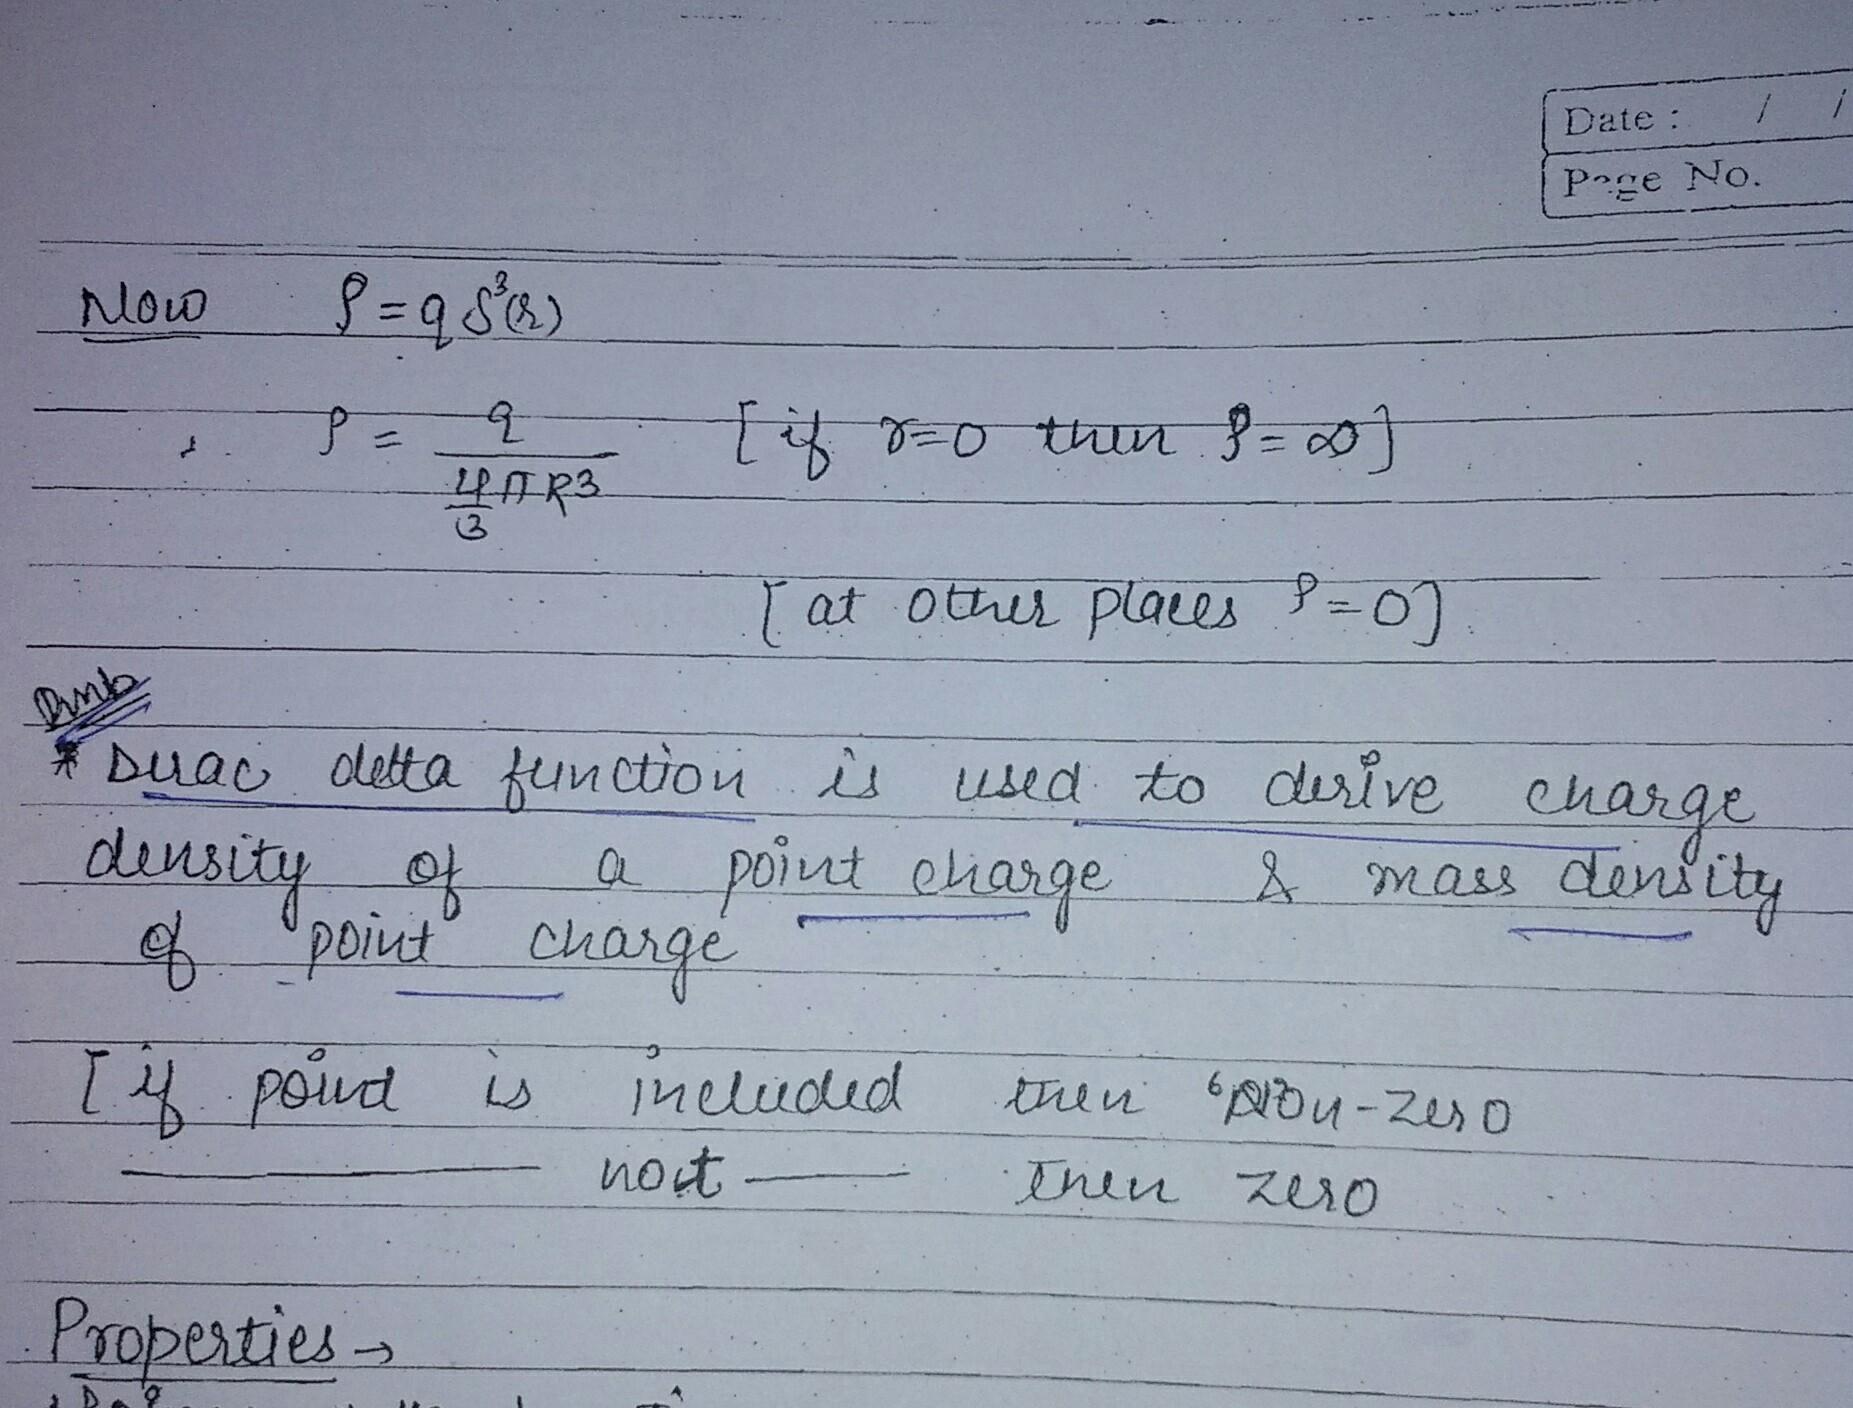 Date : / /
Page No.
Now ρ = q δ³(r)
ρ = q / 4/3 π R3 [ if r=0 then ρ = ∞ ]
[ at other places ρ = 0 ]
* Dirac delta function is used to derive charge
density of a point charge & mass density
of point charge
[ if point is included then Non-zero
—— not —— then zero
Properties →